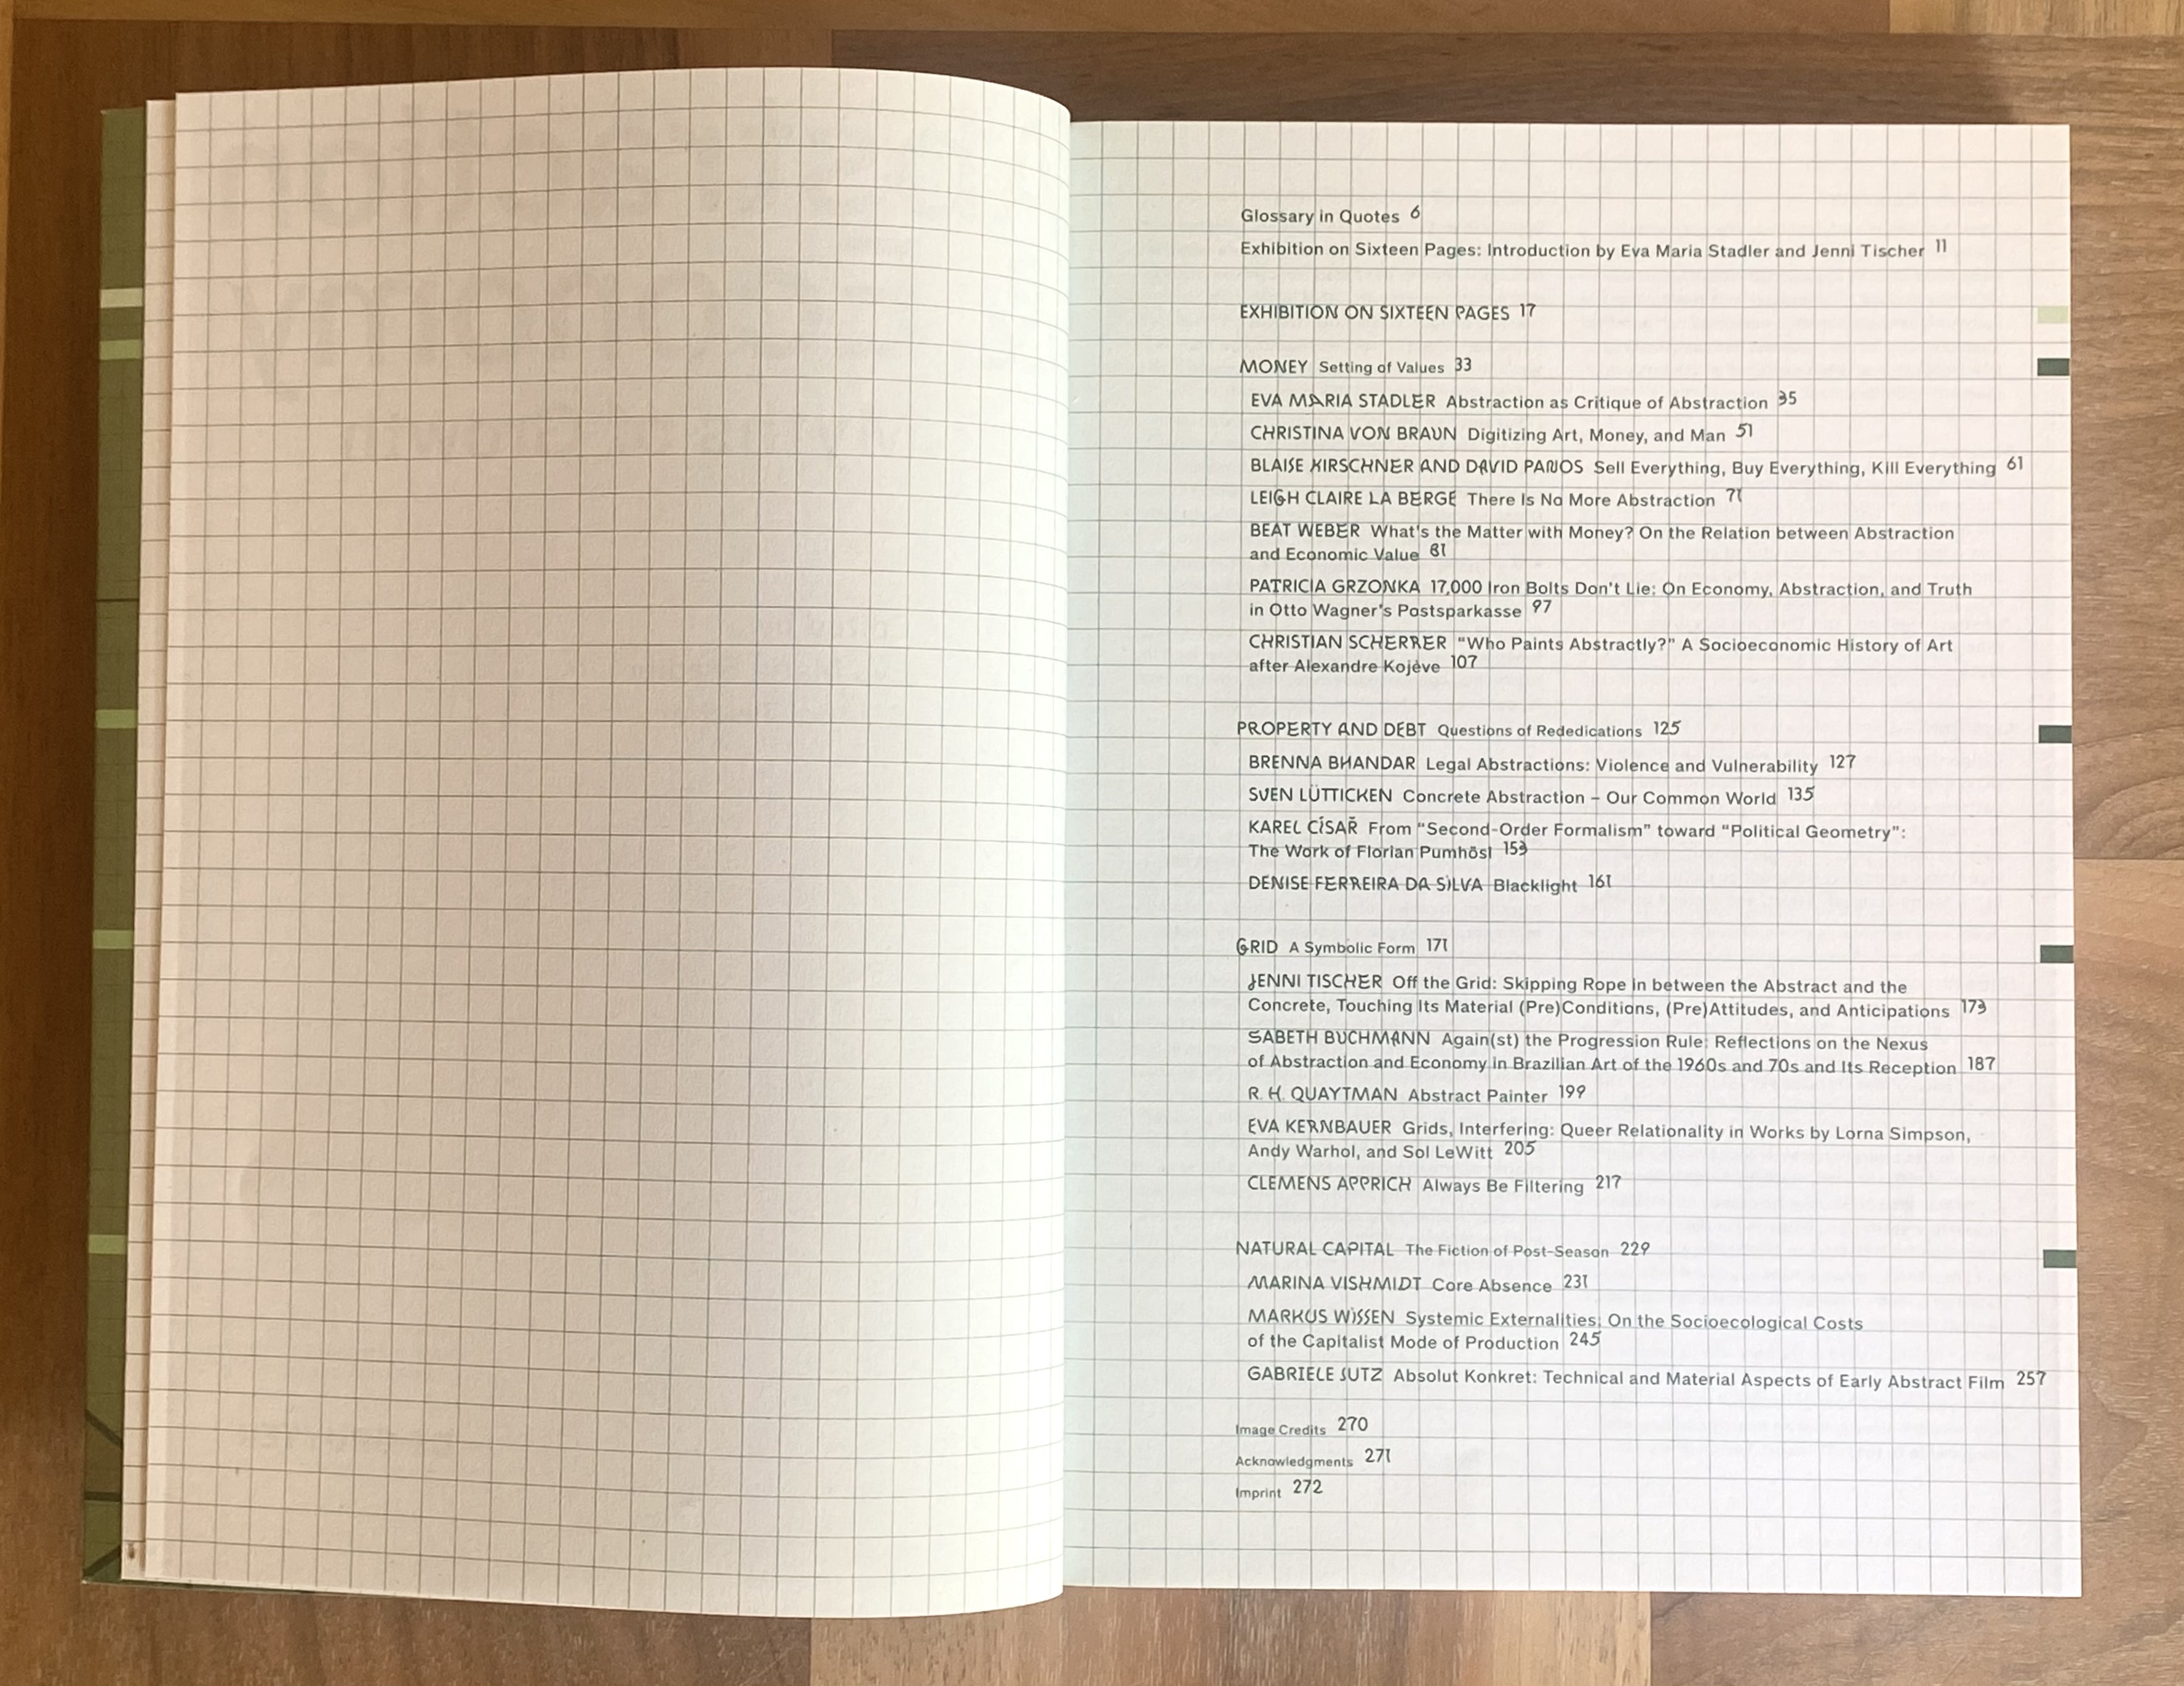 Glossary in Quotes 6
Exhibition on Sixteen Pages: Introduction by Eva Maria Stadler and Jenni Tischer 11
EXHIBITION ON SIXTEEN PAGES 17
MONEY Setting of Values 33
EVA MARIA STADLER Abstraction as Critique of Abstraction 35
CHRISTINA VON BRAUN Digitizing Art, Money, and Man 51
BLAISE KIRSCHNER AND DAVID PANOS Sell Everything, Buy Everything, Kill Everything 61
LEIGH CLAIRE LA BERGE There Is No More Abstraction 71
BEAT WEBER What's the Matter with Money? On the Relation between Abstraction
and Economic Value 81
PATRICIA GRZONKA 17,000 Iron Bolts Don't Lie: On Economy, Abstraction, and Truth
in Otto Wagner's Postsparkasse 97
CHRISTIAN SCHERRER "Who Paints Abstractly?" A Socioeconomic History of Art
after Alexandre Kojève 107
PROPERTY AND DEBT Questions of Rededications 125
BRENNA BHANDAR Legal Abstractions: Violence and Vulnerability 127
SVEN LÜTTICKEN Concrete Abstraction – Our Common World 135
KAREL CÍSAŘ From "Second-Order Formalism" toward "Political Geometry":
The Work of Florian Pumhösl 153
DENISE FERREIRA DA SILVA Blacklight 161
GRID A Symbolic Form 171
JENNI TISCHER Off the Grid: Skipping Rope in between the Abstract and the
Concrete, Touching Its Material (Pre)Conditions, (Pre)Attitudes, and Anticipations 173
SABETH BUCHMANN Again(st) the Progression Rule: Reflections on the Nexus
of Abstraction and Economy in Brazilian Art of the 1960s and 70s and Its Reception 187
R. H. QUAYTMAN Abstract Painter 199
EVA KERNBAUER Grids, Interfering: Queer Relationality in Works by Lorna Simpson,
Andy Warhol, and Sol LeWitt 205
CLEMENS APPRICH Always Be Filtering 217
NATURAL CAPITAL The Fiction of Post-Season 229
MARINA VISHMIDT Core Absence 231
MARKUS WISSEN Systemic Externalities: On the Socioecological Costs
of the Capitalist Mode of Production 245
GABRIELE JUTZ Absolut Konkret: Technical and Material Aspects of Early Abstract Film 257
Image Credits 270
Acknowledgments 271
Imprint 272